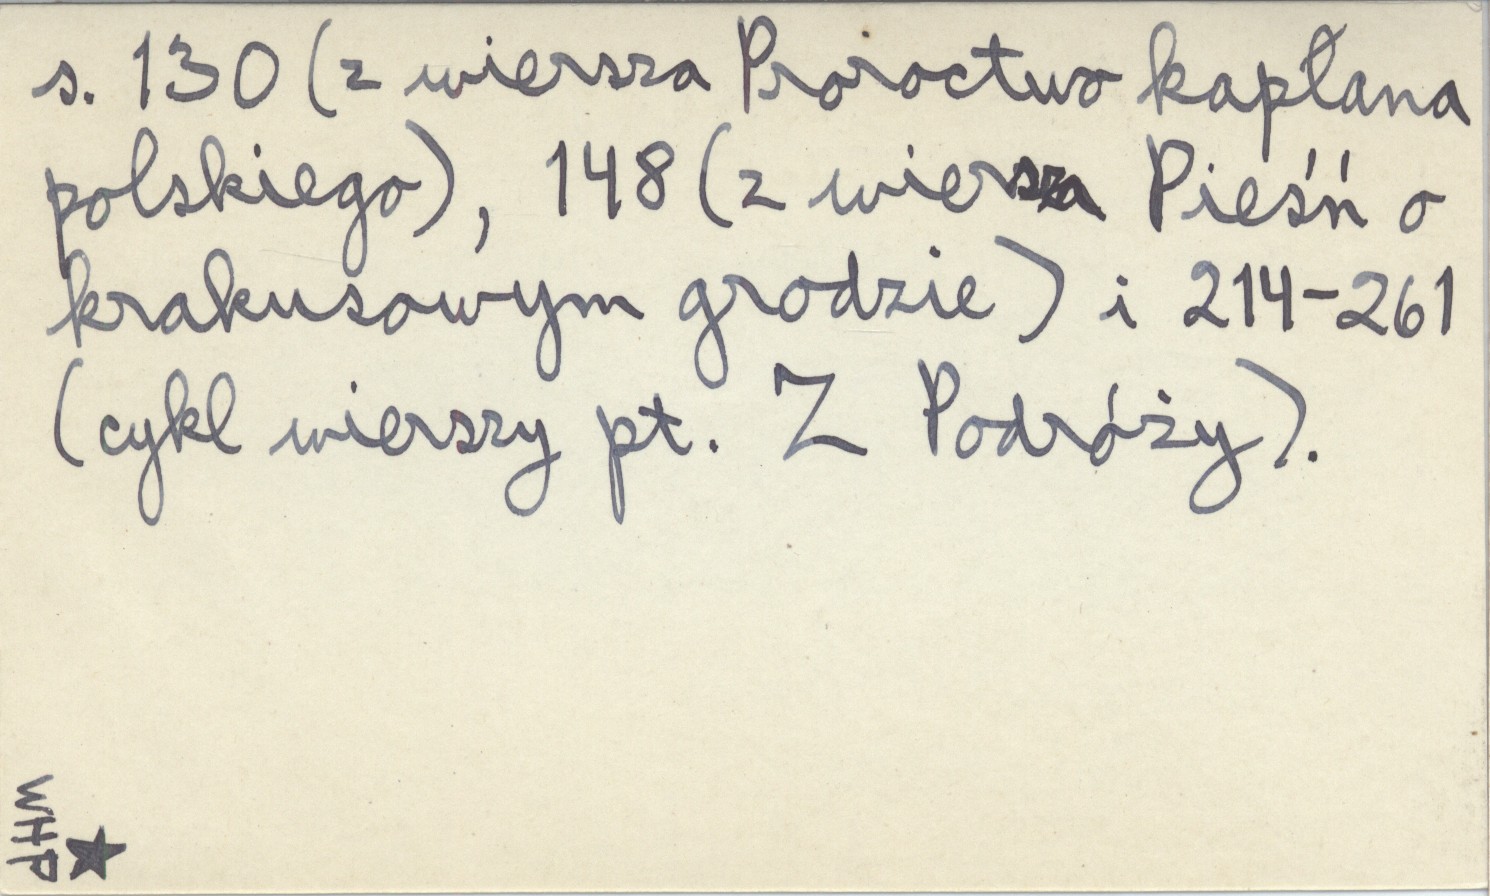 s. 130 (z wiersza Proroctwo kapłana
polskiego), 148 (z wiersza Pieśń o
krakusowym grodzie) i 214-261
(cykl wierszy pt. Z Podróży).
WHP